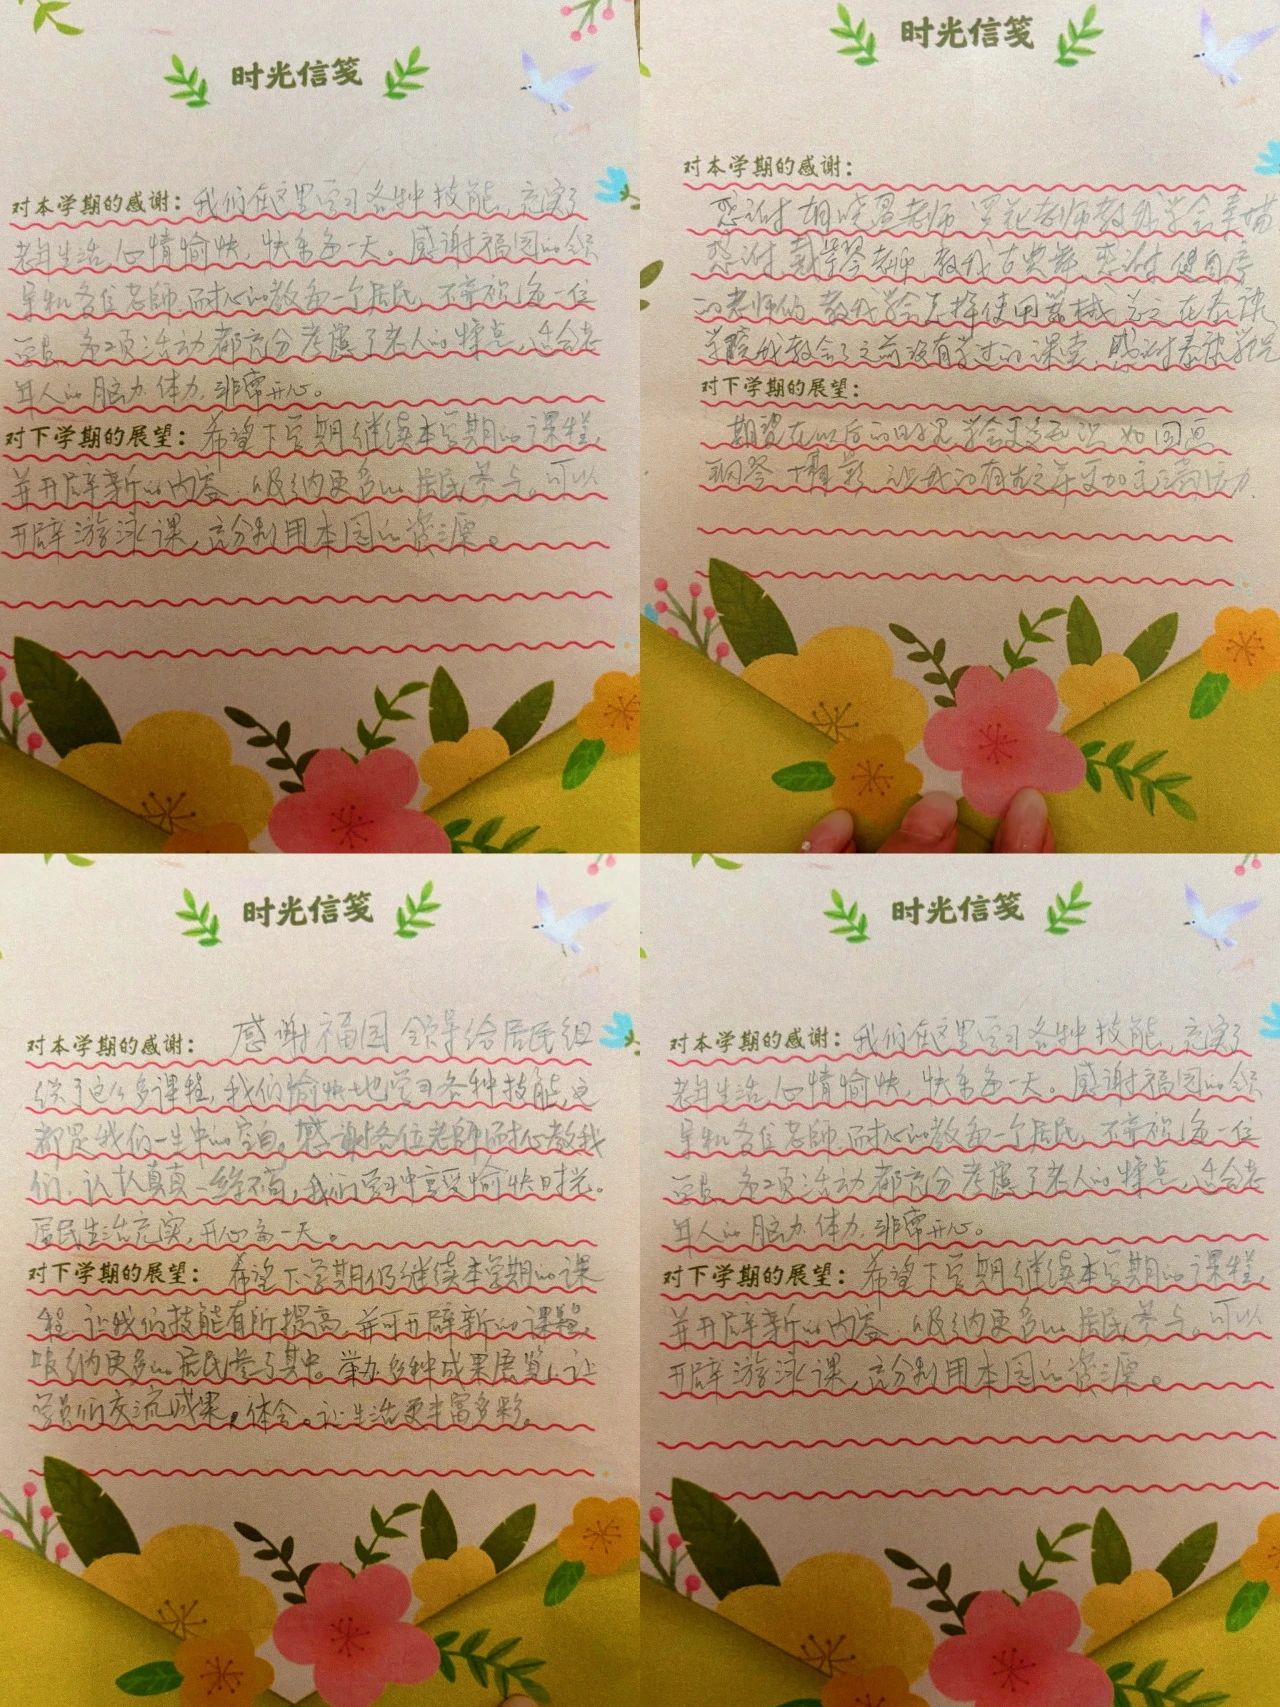 时光信笺
对本学期的感谢：我们在这里学习各种技能，充实了
老年生活，心情愉快，快乐每一天。感谢福园的领
导和各位老師，耐心的教每一个居民，不弃视每一位
学员，各项活动都充分考慮了老人的特点，适合老
年人的脑力、体力，非常开心。
对下学期的展望：希望下学期继续本学期的课程，
并开辟新的内容，吸纳更多的居民参与。可以
开辟游泳课，充分利用本园的资源。
时光信笺
对本学期的感谢：
感谢胡晓 老师 罗 老师教我学会
感谢戴 琴老师 教我古典舞，感谢健身房
的老师们 教我学会怎样使用器械 总之在泰康
学院我教会了之前没有学过的课堂，感谢泰康学院
对下学期的展望：
期望在以后的日子里 学会更多知识 如国画
钢琴 摄影，让我的有生之年更加充满活力
时光信笺
对本学期的感谢：感谢福园领导给居民组
织了这么多课程，我们愉快地学习各种技能，这
都是我们一生中的空白。感谢各位老師耐心教我
们，认认真真一丝不苟，我们学习中享受愉快时光。
居民生活充实，开心每一天。
对下学期的展望：希望下学期仍继续本学期的课
程，让我们技能有所提高，并可开辟新的课程，
吸纳更多的居民参与其中。举办多种成果展览，让
学员们交流成果，体会。让生活更丰富多彩。
时光信笺
对本学期的感谢：我们在这里学习各种技能，充实了
老年生活，心情愉快，快乐每一天。感谢福园的领
导和各位老師，耐心的教每一个居民，不弃视每一位
学员，各项活动都充分考慮了老人的特点，适合老
年人的脑力、体力，非常开心。
对下学期的展望：希望下学期继续本学期的课程，
并开辟新的内容，吸纳更多的居民参与。可以
开辟游泳课，充分利用本园的资源。